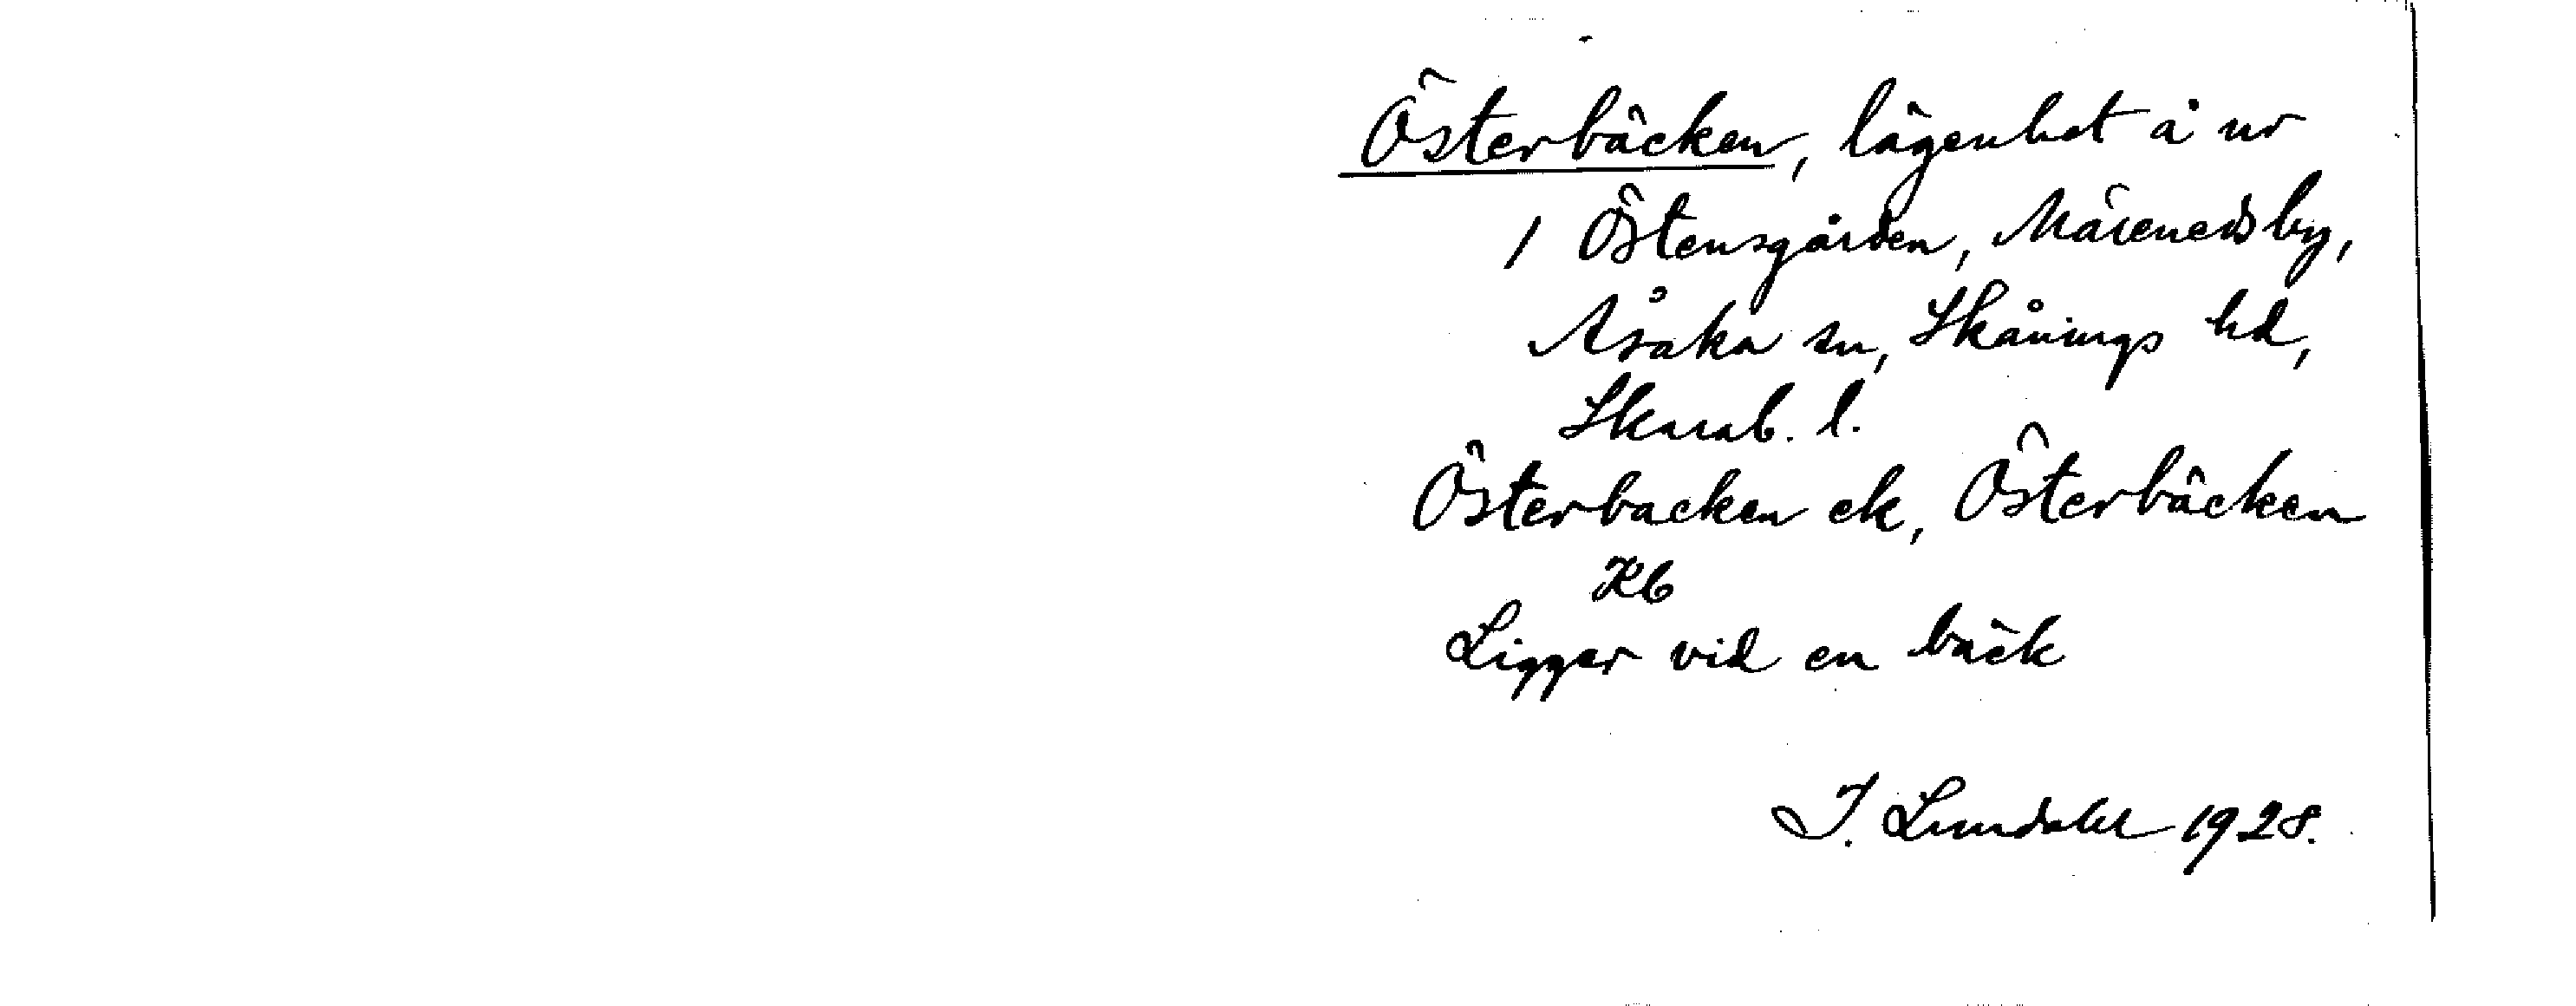 Österbäcken, lägenhet å nr
1 Östensgården, Märeneds by,
Åsaka sn, Skånings hd,
Skarab. l.
Österbacken ek, Österbäcken
Kb
Ligger vid en bäck
I. Lundahl 1928.